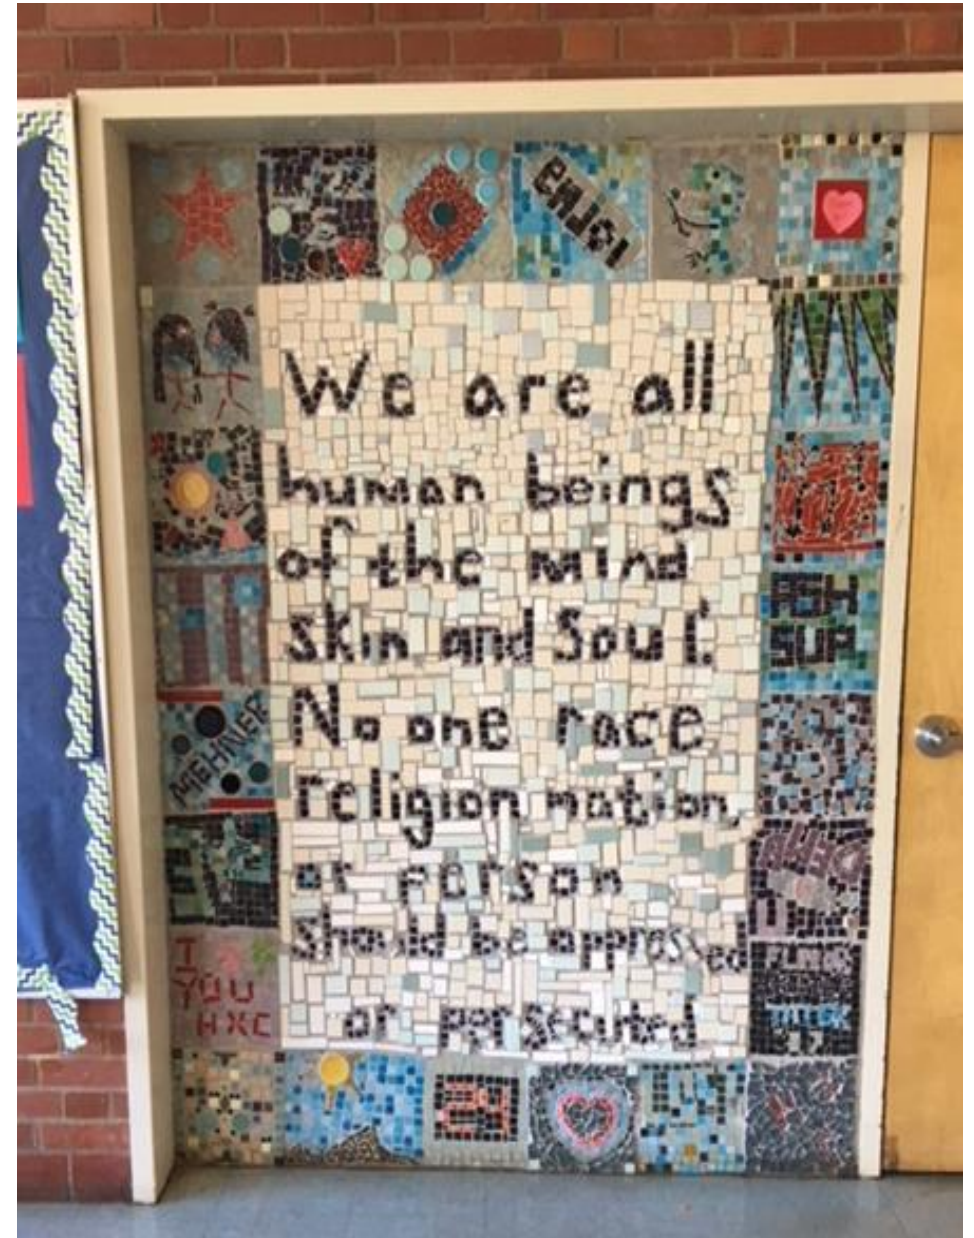 enjoi
We are all
human beings
of the mind
skin and Soul.
No one race
religion nation,
or person
should be oppressed
or persecuted
ASH
SUP
MEHNER
I
YOU
HXC